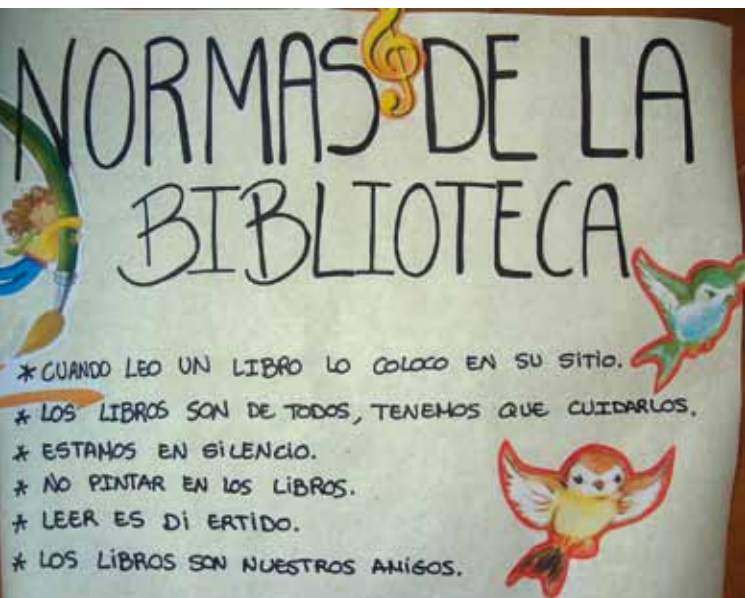 NORMAS DE LA
BIBLIOTECA
* CUANDO LEO UN LIBRO LO COLOCO EN SU SITIO.
* LOS LIBROS SON DE TODOS, TENEMOS QUE CUIDARLOS.
* ESTAMOS EN SILENCIO.
* NO PINTAR EN LOS LIBROS.
* LEER ES DI ERTIDO.
* LOS LIBROS SON NUESTROS AMIGOS.